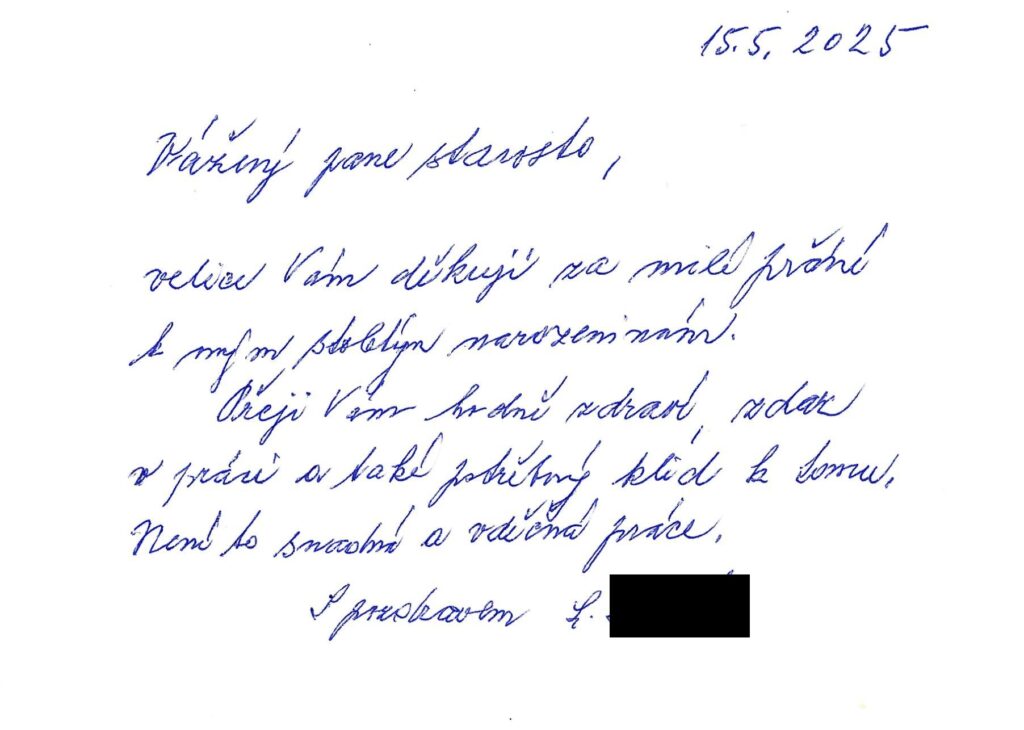 15.5. 2025
Vážený pane starosto,
velice Vám děkuji za milé přání
k mým stoletým narozeninám.
Přeji Vám hodně zdraví, zdar
v práci a také potřebný klid k tomu.
Není to snadná a vděčná práce.
S pozdravem L.